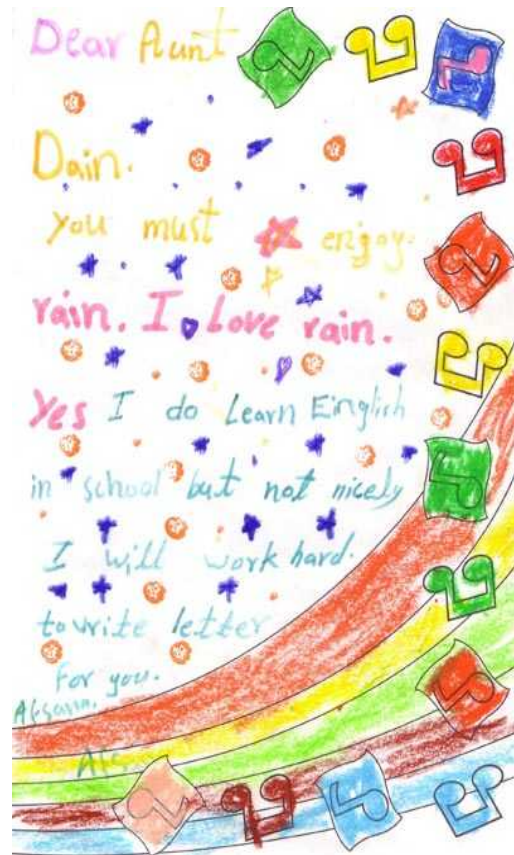 Dear Aunt
Dain.
you must enjoy.
rain. I Love rain.
Yes I do Learn Einglich
in school but not nicely
I will work hard.
to write letter
for you.